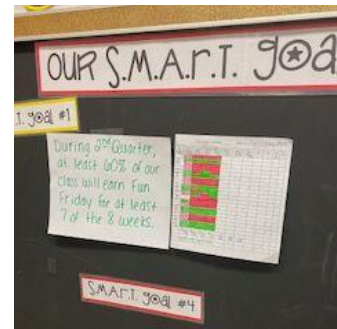 OUR S.M.A.r.T. goa
.T. goal #1
During 2nd Quarter,
at least 60% of our
class will earn Fun
Friday for at least
7 of the 8 weeks.
S.M.A.r.T. goal #4